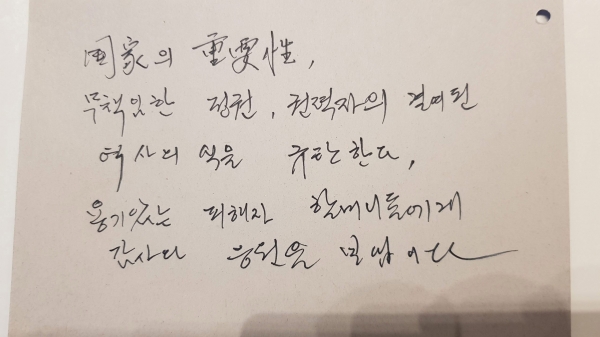 国家의 重要性,
무책임한 정권, 권력자의 결여된
역사의식을 규탄한다,
용기있는 피해자 할머니들에게
감사와 응원을 보냅니다